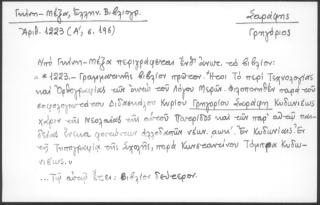 Γκίνη - Μέξα, Ἑλλην. Βιβλιογρ. Σαράφης
Ἀριθ. 1223 (Α', σ. 196) Γρηγόριος
Ἀπό Γκίνη - Μέξα περιγράφεται τό βιβλίον:
"*1223. - Γραμματικῆς βιβλίον πρῶτον. Ἤτοι Τό περί Τεχνολογίας
καί Ὀρθογραφίας τῶν ὀκτώ τοῦ Λόγου Μερῶν. Φιλοπονηθέν παρά τοῦ
σοφολογιωτάτου Διδασκάλου Κυρίου Γρηγορίου Σαράφη Κυδωνιέως
χάριν τῆς Νεολαίας τῆς αὐτοῦ Πατρίδος καί τῶν παρ' αὐτῇ παι-
δείας ἕνεκα φοιτώντων ἀλλοδαπῶν νέων. Ἐν Κυδωνίαις. Ἐν
τῇ Τυπογραφίᾳ τῆς Σχολῆς, παρά Κωνσταντίνου Τόμπρα Κυδω-
νιέως."
... Τῷ αὐτῷ ἔτει: Βιβλίον δεύτερον.